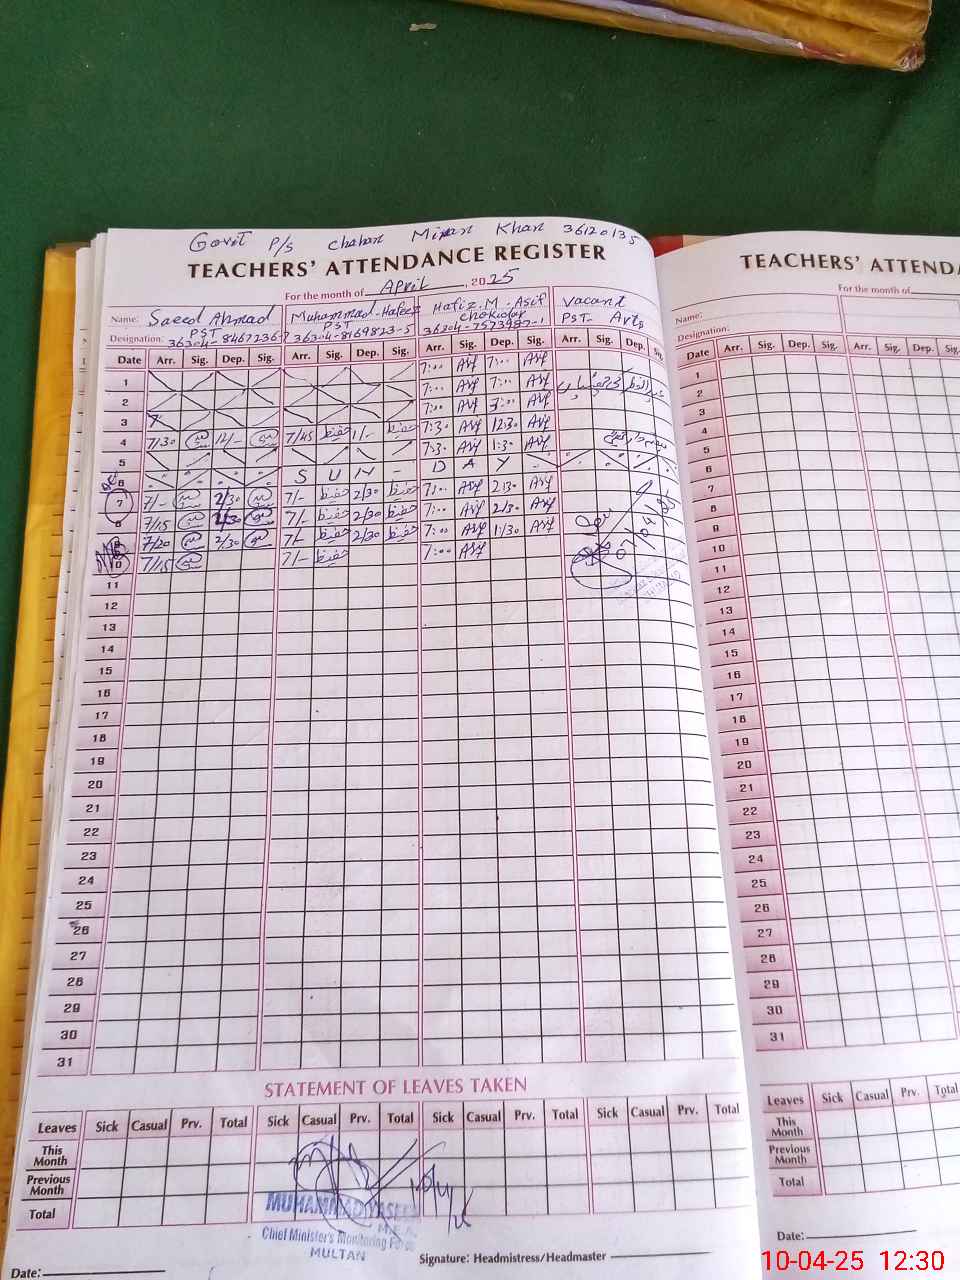 Govt P/S Chahan Miran Khan 36120135
TEACHERS' ATTENDANCE REGISTER
For the month of April, 2025
Name: Saeed Ahmad Muhammad Hafeez Hafiz. M. Asif Vacant
Designation: PST PST Chokidar PST- Arts
36304-8169823-5
Date Arr. Sig. Dep. Sig. Arr. Sig. Dep. Sig. Arr. Sig. Dep. Sig. Arr. Sig. Dep. Sig.
1 7:00 Asif 7:00 Asif
2 7:00 Asif 7:00 Asif
3 7:00 Asif 7:00 Asif
4 7/30 12/- 7/45 حفیظ 1/- حفیظ 7:30 Asif 12:30 Asif
5 7:30 Asif 1:30 Asif
6 S U N - D A Y
7 7/- 2/30 7/- حفیظ 2/30 حفیظ 7:00 Asif 2:30 Asif
8 7/15 2/30 7/- حفیظ 2/30 حفیظ 7:00 Asif 2/30 Asif
9 7/20 2/30 7/- حفیظ 2/30 حفیظ 7:00 Asif 1:30 Asif
10 7/15 7/- حفیظ 7:00 Asif
07/04/25
11
12
13
14
15
16
17
18
19
20
21
22
23
24
25
26
27
28
29
30
31
STATEMENT OF LEAVES TAKEN
Leaves Sick Casual Prv. Total Sick Casual Prv. Total Sick Casual Prv. Total Sick Casual Prv. Total
This Month
Previous Month
Total
MUHAMMAD YASEEN
M.E.A.
Chief Minister's Monitoring Force
MULTAN
Signature: Headmistress/Headmaster
Date:
TEACHERS' ATTENDA
For the month of
Name:
Designation:
Date Arr. Sig. Dep. Sig. Arr. Sig. Dep. Sig.
1
2
3
4
5
6
7
8
9
10
11
12
13
14
15
16
17
18
19
20
21
22
23
24
25
26
27
28
29
30
31
Leaves Sick Casual Prv. Total
This Month
Previous Month
Total
Date:
10-04-25 12:30